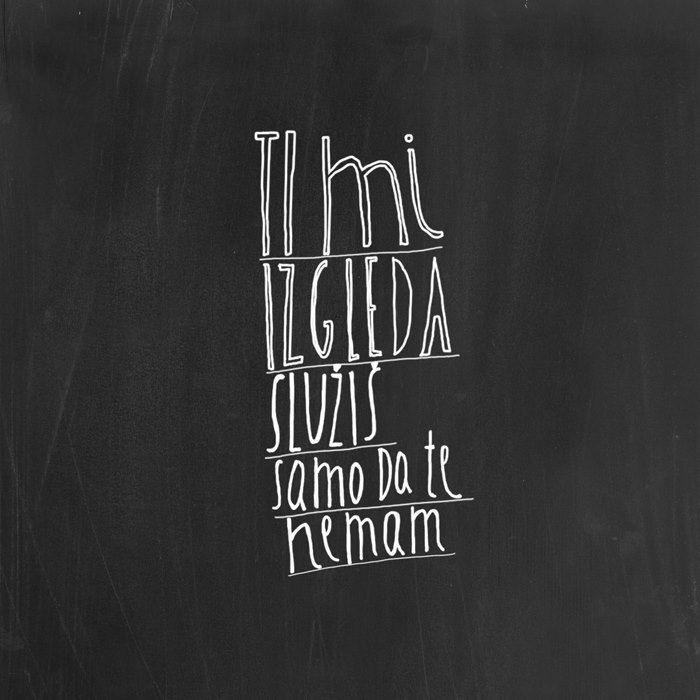 TI mi
IZGLEDA
SLUŽIŠ
samo Da te
nemam